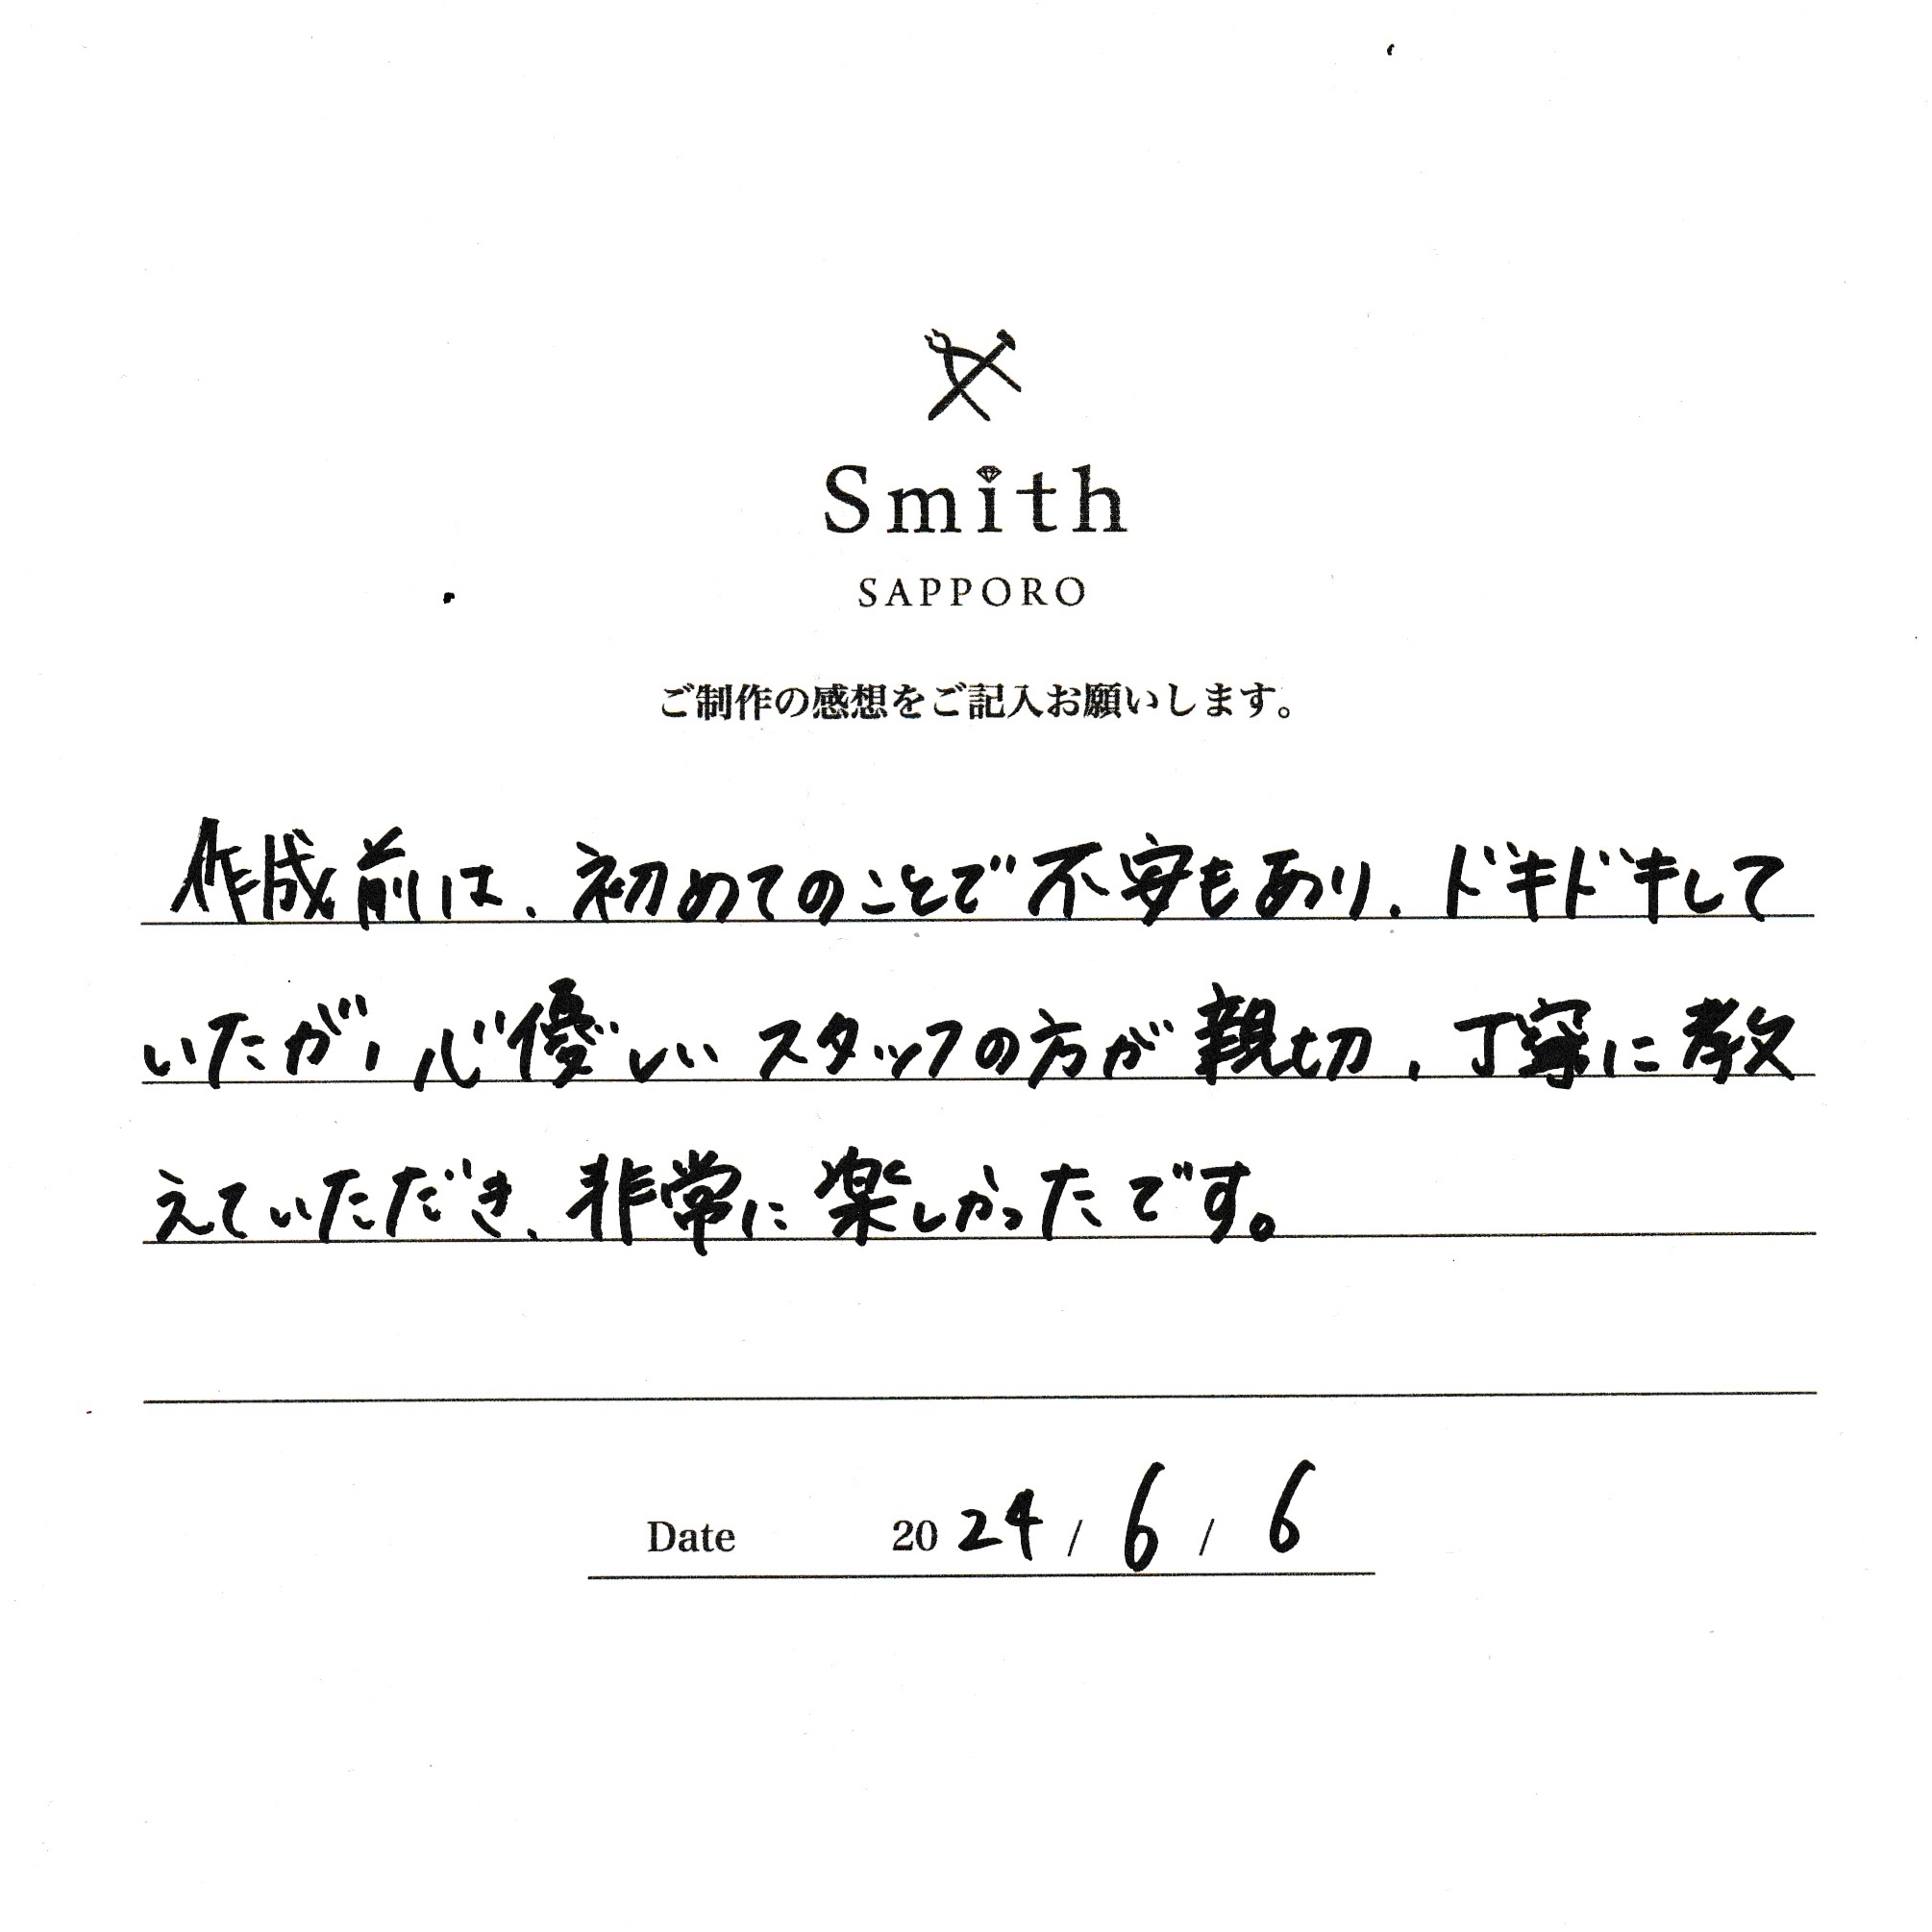 Smith
SAPPORO
ご制作の感想をご記入お願いします。
作成前は、初めてのことで不安もあり、ドキドキして
いたが、心優しいスタッフの方が親切、丁寧に教
えていただき、非常に楽しかったです。
Date 2024/6/6